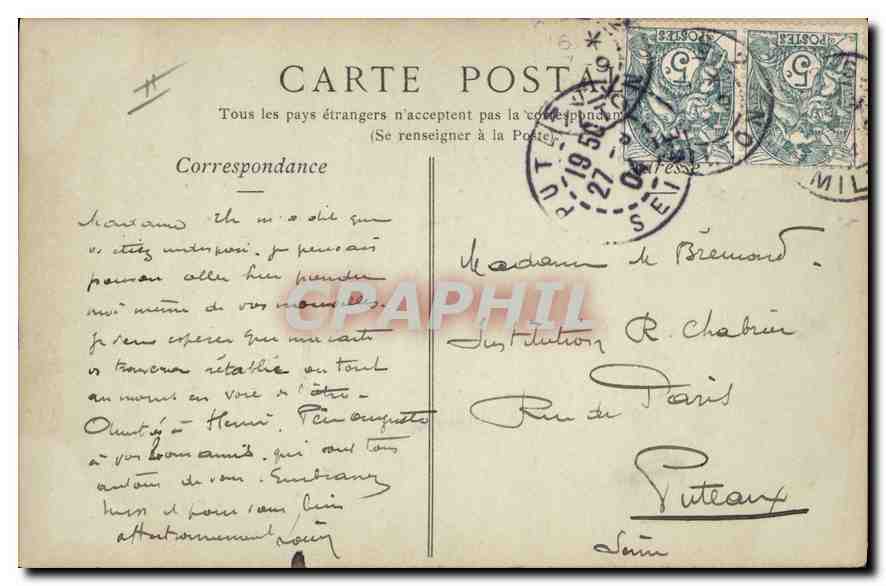 CARTE POSTALE
Tous les pays étrangers n'acceptent pas la correspondance
(Se renseigner à la Poste).
Correspondance
Adresse
5c
POSTES
5c
POSTES
PUTEAUX
19 50
27
04
SEINE
MIL
Madame M Brémond.
Institution R. Chabrier
Rue de Paris
Puteaux
Seine
Madame Eh m'a dit que
vs étiez indisposé. Je pensais
pouvoir aller hier prendre
moi même de vos nouvelles.
Je veux espérer que ma carte
vs trouvera rétablie ou tout
au moins en voie de l'être.
Amitiés à Henri, Père Auguste
à vos bons amis qui sont tous
autour de vous. Embrassez
et pour vous bien
affectueusement
CPAPHIL